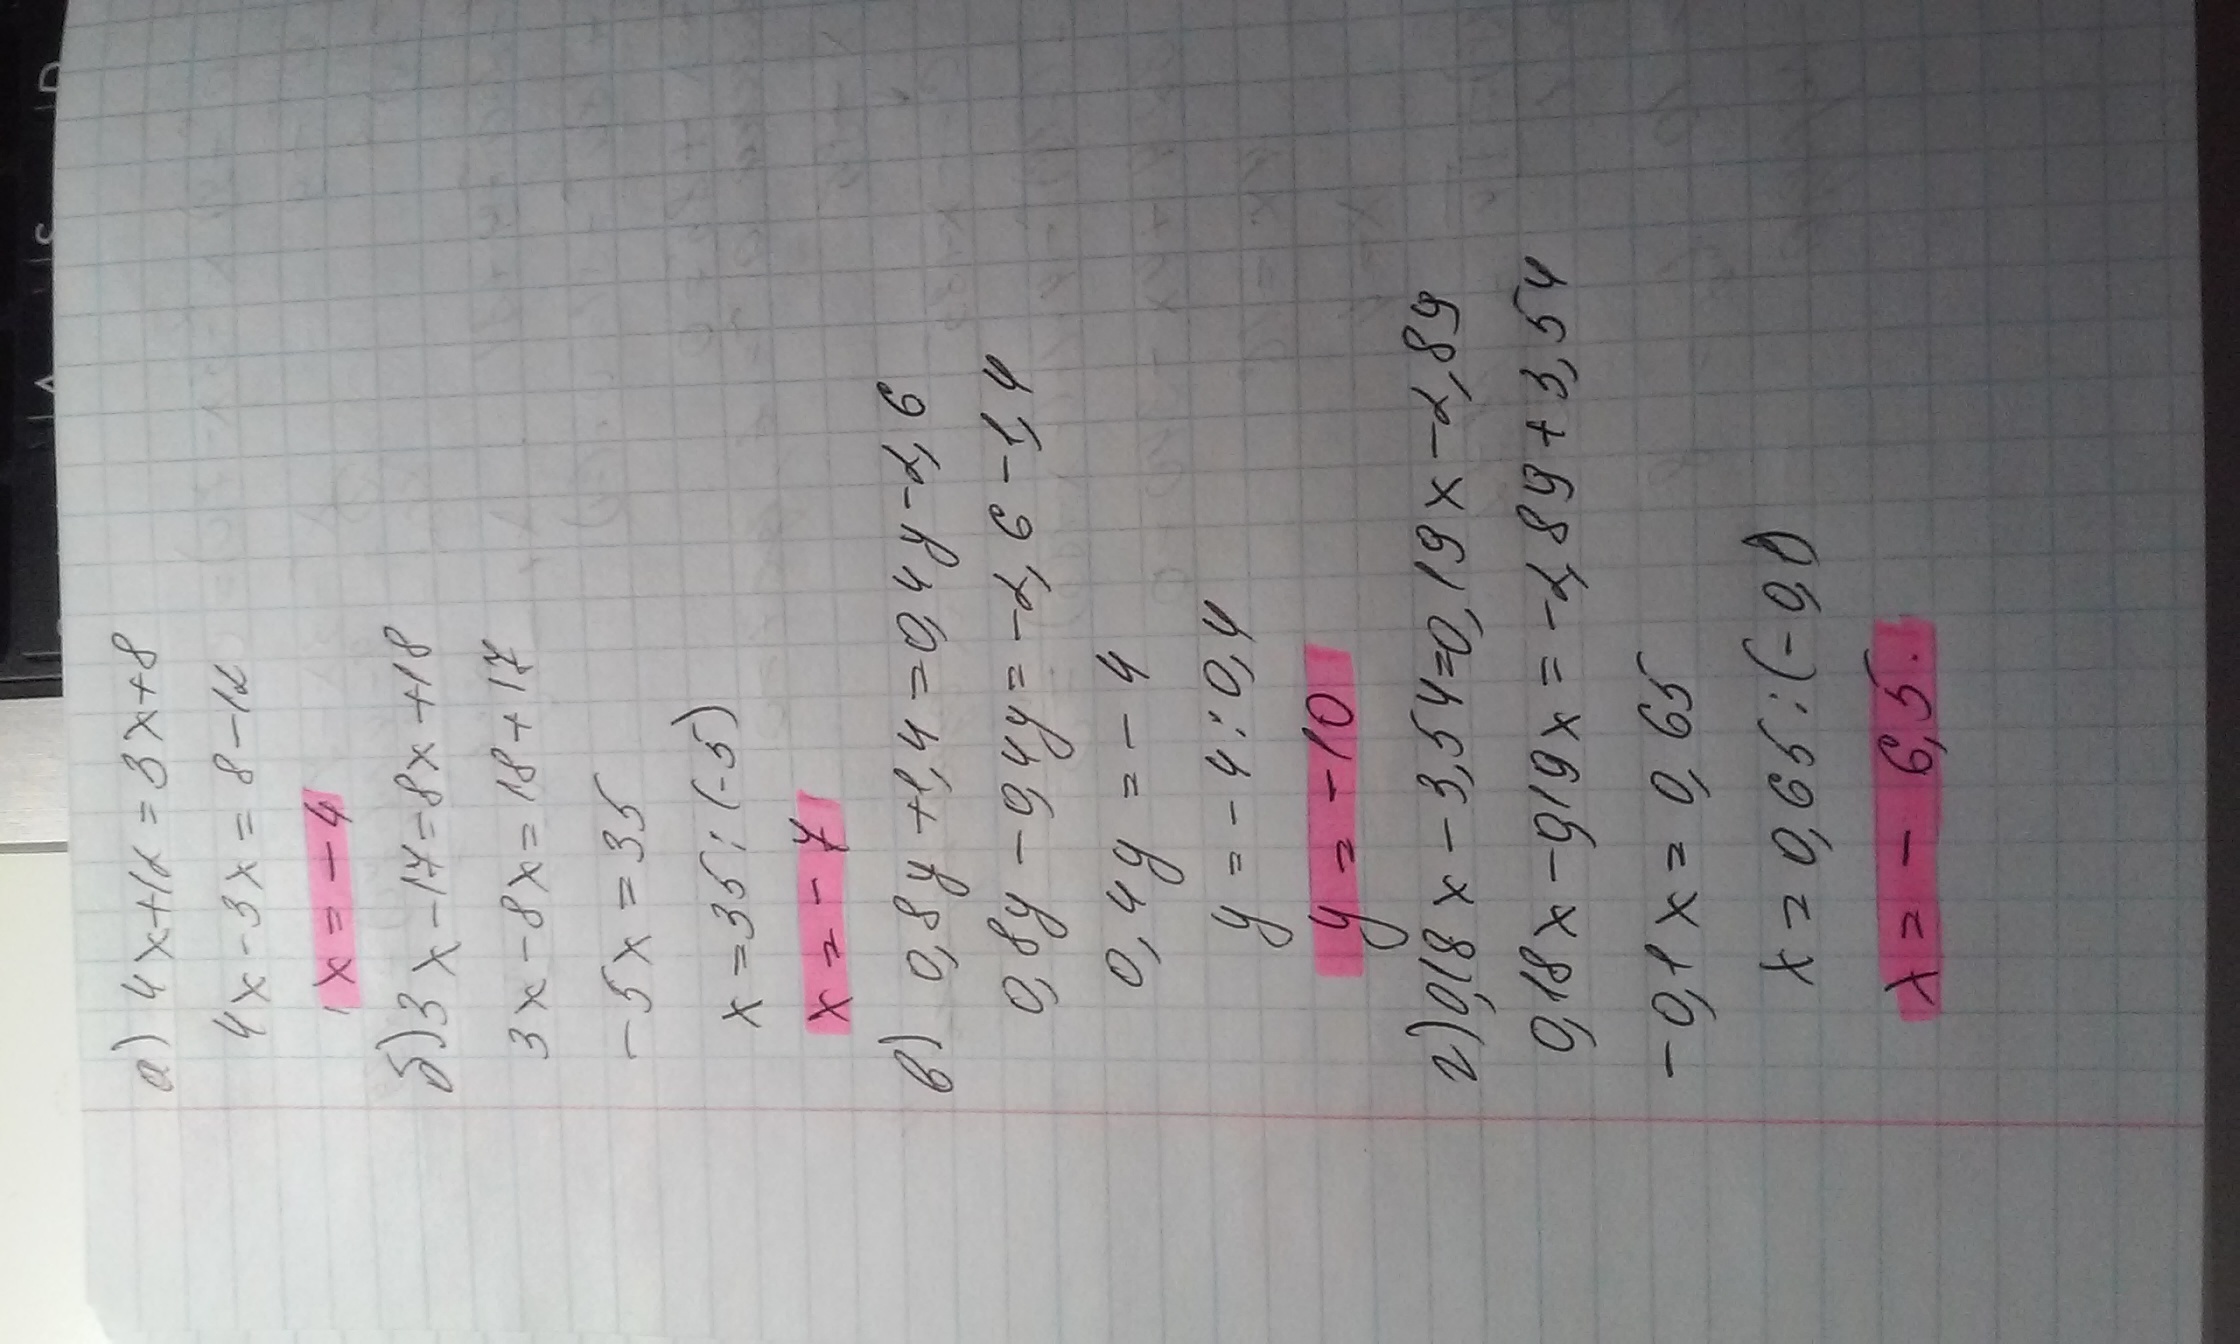 а) 4x+12=3x+8
4x-3x=8-12
x=-4
б) 3x-17=8x+18
3x-8x=18+17
-5x=35
x=35:(-5)
x=-7
в) 0,8y+1,4=0,4y-2,6
0,8y-0,4y=-2,6-1,4
0,4y=-4
y=-4:0,4
y=-10
г) 0,18x-3,54=0,19x-2,89
0,18x-0,19x=-2,89+3,54
-0,1x=0,65
x=0,65:(-0,1)
x=-6,5.